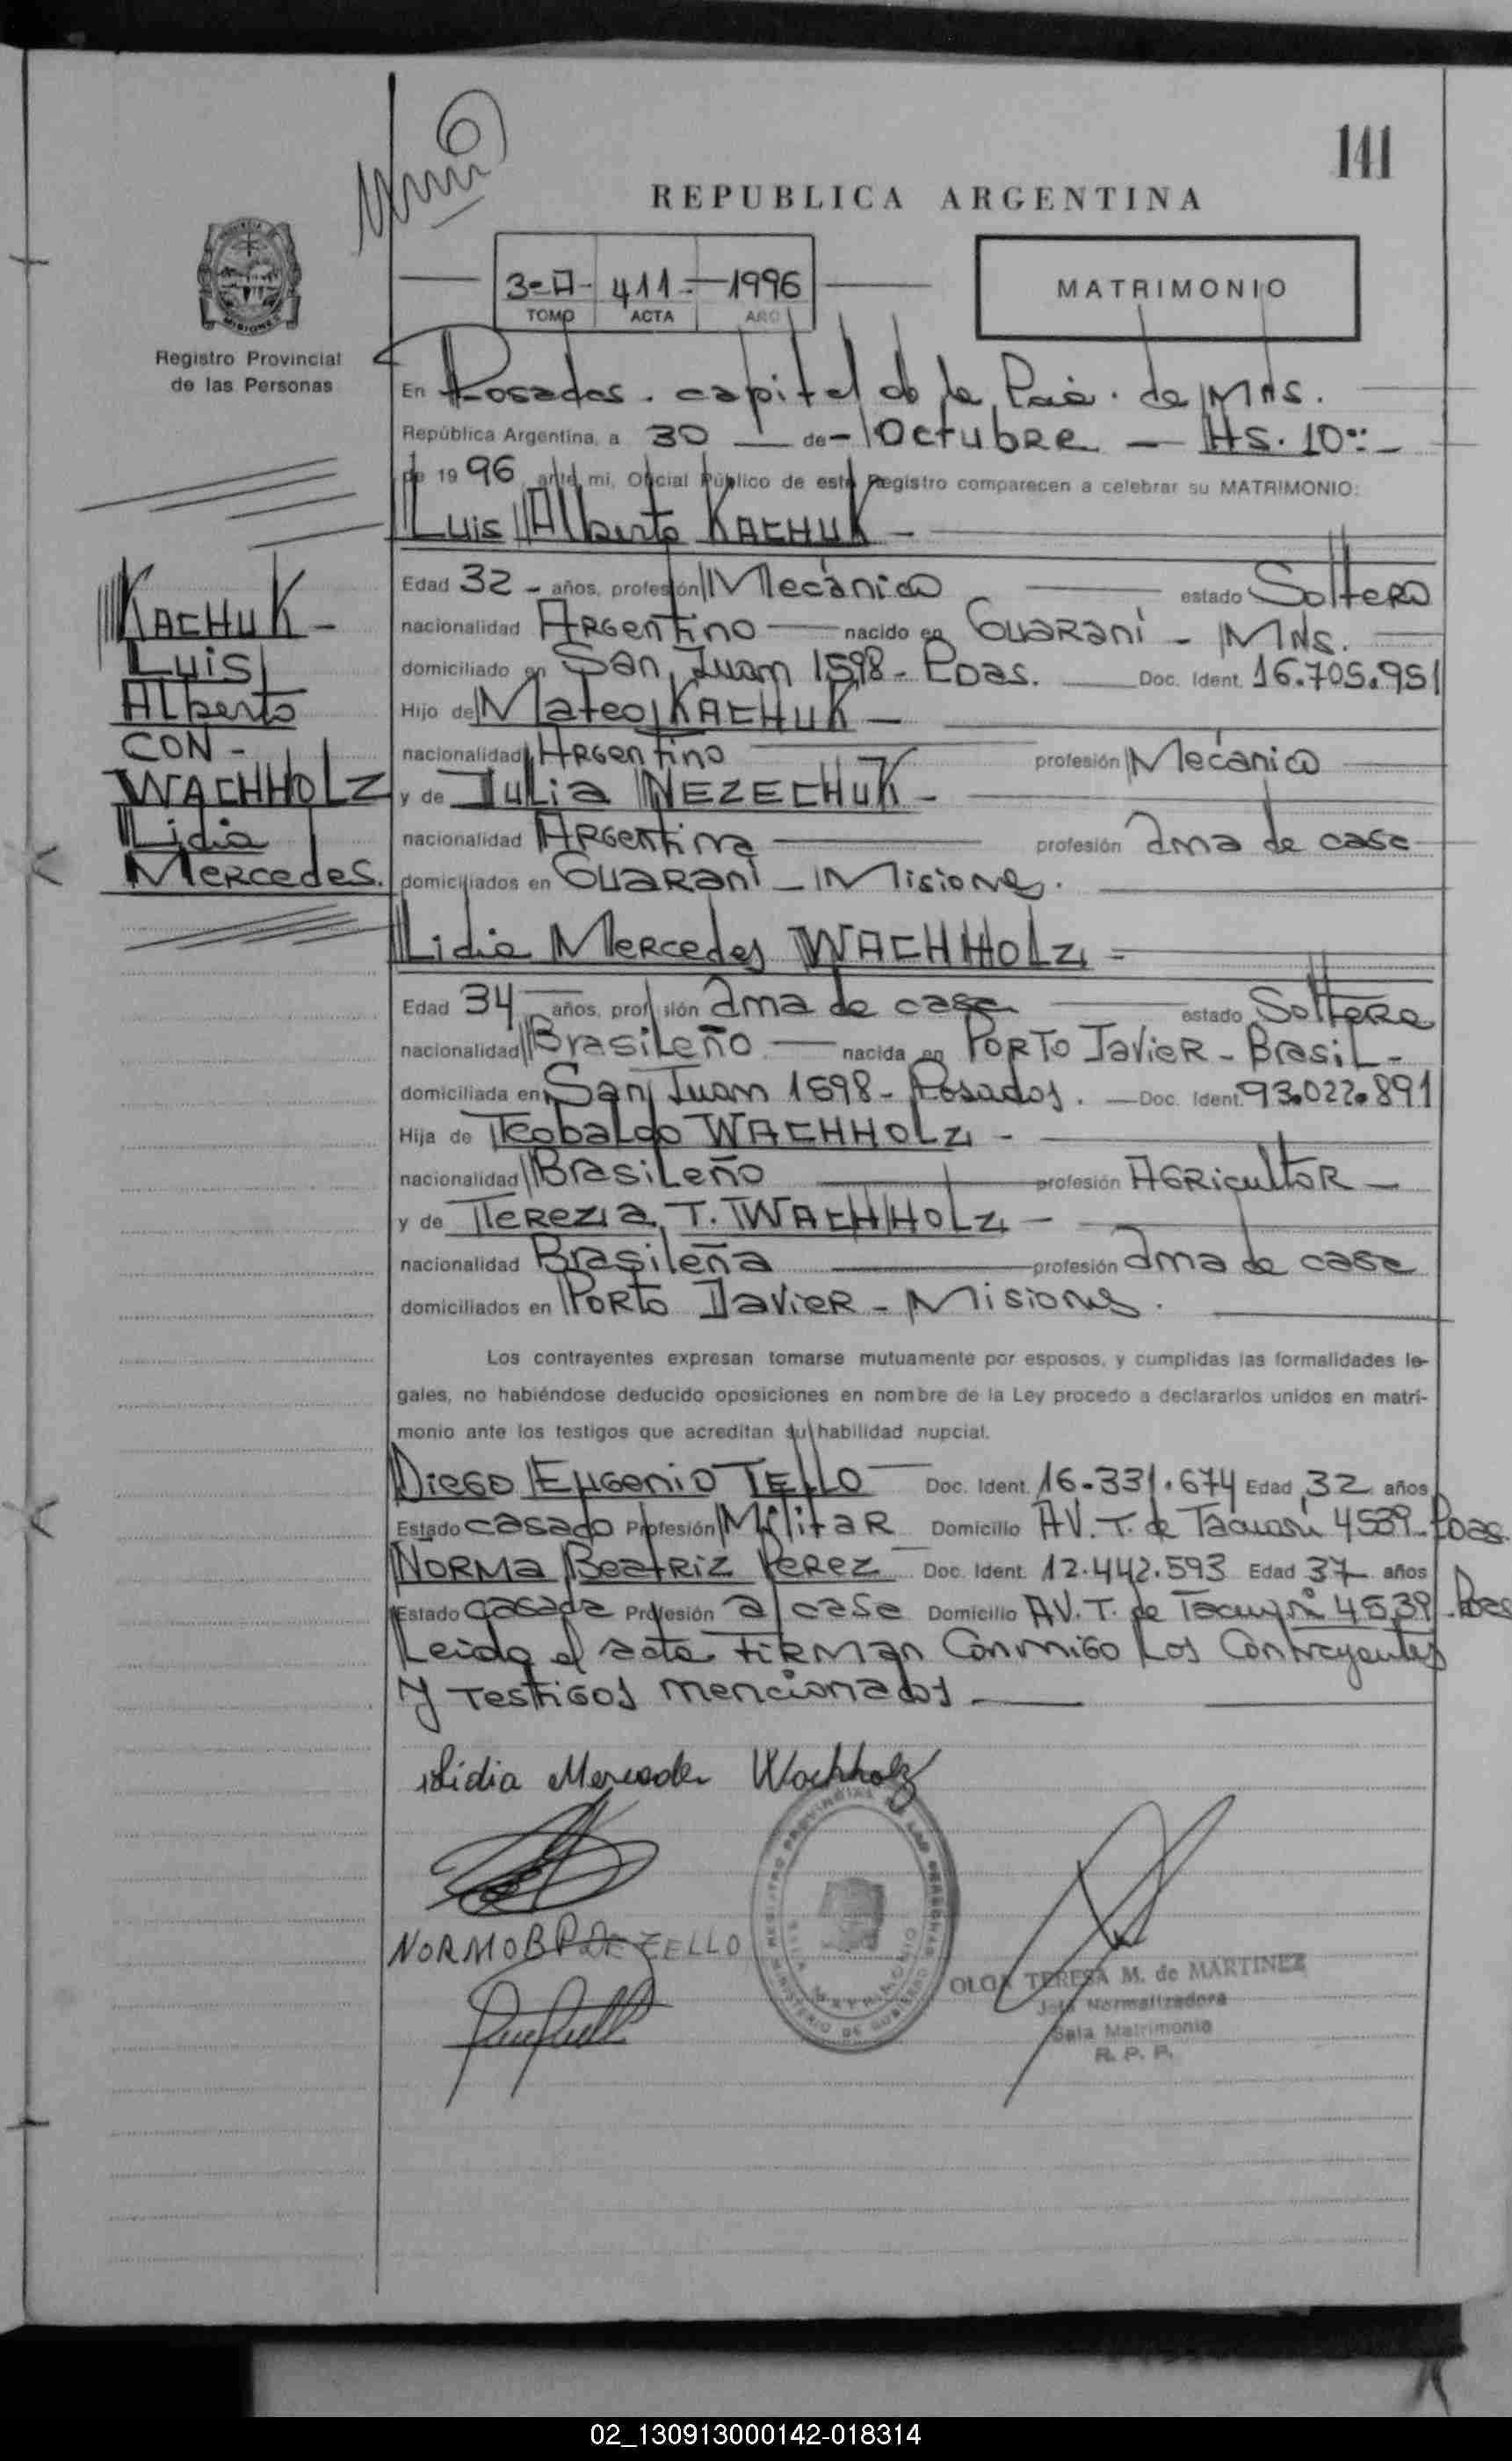 141
REPUBLICA ARGENTINA
3-A- 411- 1996
TOMO ACTA AÑO
MATRIMONIO
MISIONES
Registro Provincial
de las Personas
En Posadas. capital de la Pcia. de Mns.
República Argentina, a 30 de - Octubre - Hs. 10:-
de 1996 ante mi, Oficial Público de este Registro comparecen a celebrar su MATRIMONIO:
Luis Alberto KACHUK -
KACHUK -
Luis
Alberto
CON -
WACHHOLZ
Lidia
Mercedes.
Edad 32 - años, profesión Mecánico estado Soltero
nacionalidad Argentino nacido en Guaraní - Mns.
domiciliado en San Juan 1598 - Pdas. Doc. Ident. 16.705.951
Hijo de Mateo KACHUK -
nacionalidad Argentino profesión Mecánico
y de Julia NEZECHUK -
nacionalidad Argentina profesión ama de casa
domiciliados en Guaraní - Misiones.
Lidia Mercedes WACHHOLZ -
Edad 34 años, profesión ama de casa estado Soltera
nacionalidad Brasileño nacida en Porto Javier - Brasil -
domiciliada en San Juan 1598 - Posadas. Doc. Ident. 93.022.891
Hija de Teobaldo WACHHOLZ -
nacionalidad Brasileño profesión Agricultor -
y de Terezia T. WACHHOLZ -
nacionalidad Brasileña profesión ama de casa
domiciliados en Porto Javier - Misiones.
Los contrayentes expresan tomarse mutuamente por esposos, y cumplidas las formalidades le-
gales, no habiéndose deducido oposiciones en nombre de la Ley procedo a declararlos unidos en matri-
monio ante los testigos que acreditan su habilidad nupcial.
Diego Eugenio TELLO Doc. Ident. 16.331.674 Edad 32 años
Estado casado Profesión Militar Domicilio AV. T. de Tacuarí 4539 Pdas.
Norma Beatriz Perez Doc. Ident. 12.442.593 Edad 37 años
Estado casada Profesión a/casa Domicilio AV. T. de Tacuarí 4539. Pdas
Leida el acta firman conmigo los contrayentes
y testigos mencionados
Lidia Mercedes Wachholz
OLGA TERESA M. de MARTINEZ
Jefa Normalizadora
Sala Matrimonio
R. P. P.
02_130913000142-018314